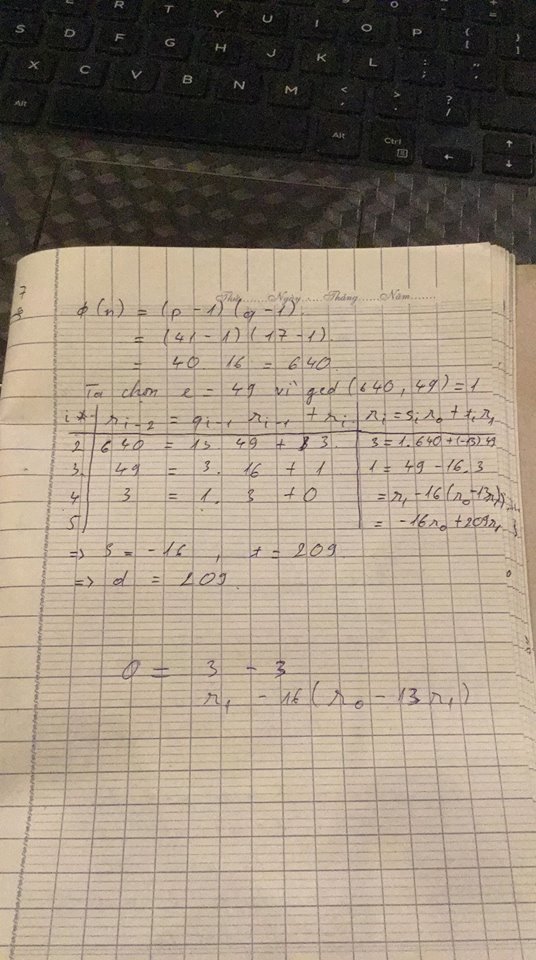 S D F G H J K L
R T Y U I O P
X C V B N M
Alt Alt Ctrl
Thứ Ngày Tháng Năm
7
8
ϕ(n) = (p-1)(q-1)
= (41-1)(17-1)
= 40 . 16 = 640
Ta chọn e = 49 vì gcd(640, 49) = 1
r_{i-2} = q_{i-1} r_{i-1} + r_i | r_i = s_i r_0 + t_i r_1
2 | 640 = 13 49 + 3 | 3 = 1.640 + (-13).49
3. | 49 = 3. 16 + 1 | 1 = 49 - 16.3
4 | 3 = 1. 3 + 0 | = r_1 - 16(r_0 - 13r_1)
5 | = -16r_0 + 209r_1
=> s = -16 , t = 209
=> d = 209
0 = 3 - 3
r_1 - 16(r_0 - 13r_1)